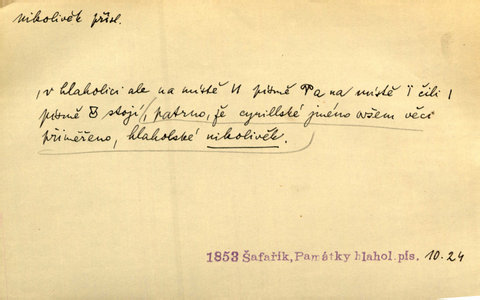 nikolivěk přísl.
, v hlaholici ale na místě И písmě Ⰰ a na místě ї čili і
písmě Ⰱ stojí, patrno, že cyrillské jméno ovšem věci
přiměřeno, hlaholské nikolivěk.
1853 Šafařík, Památky hlahol. pís. 10.24